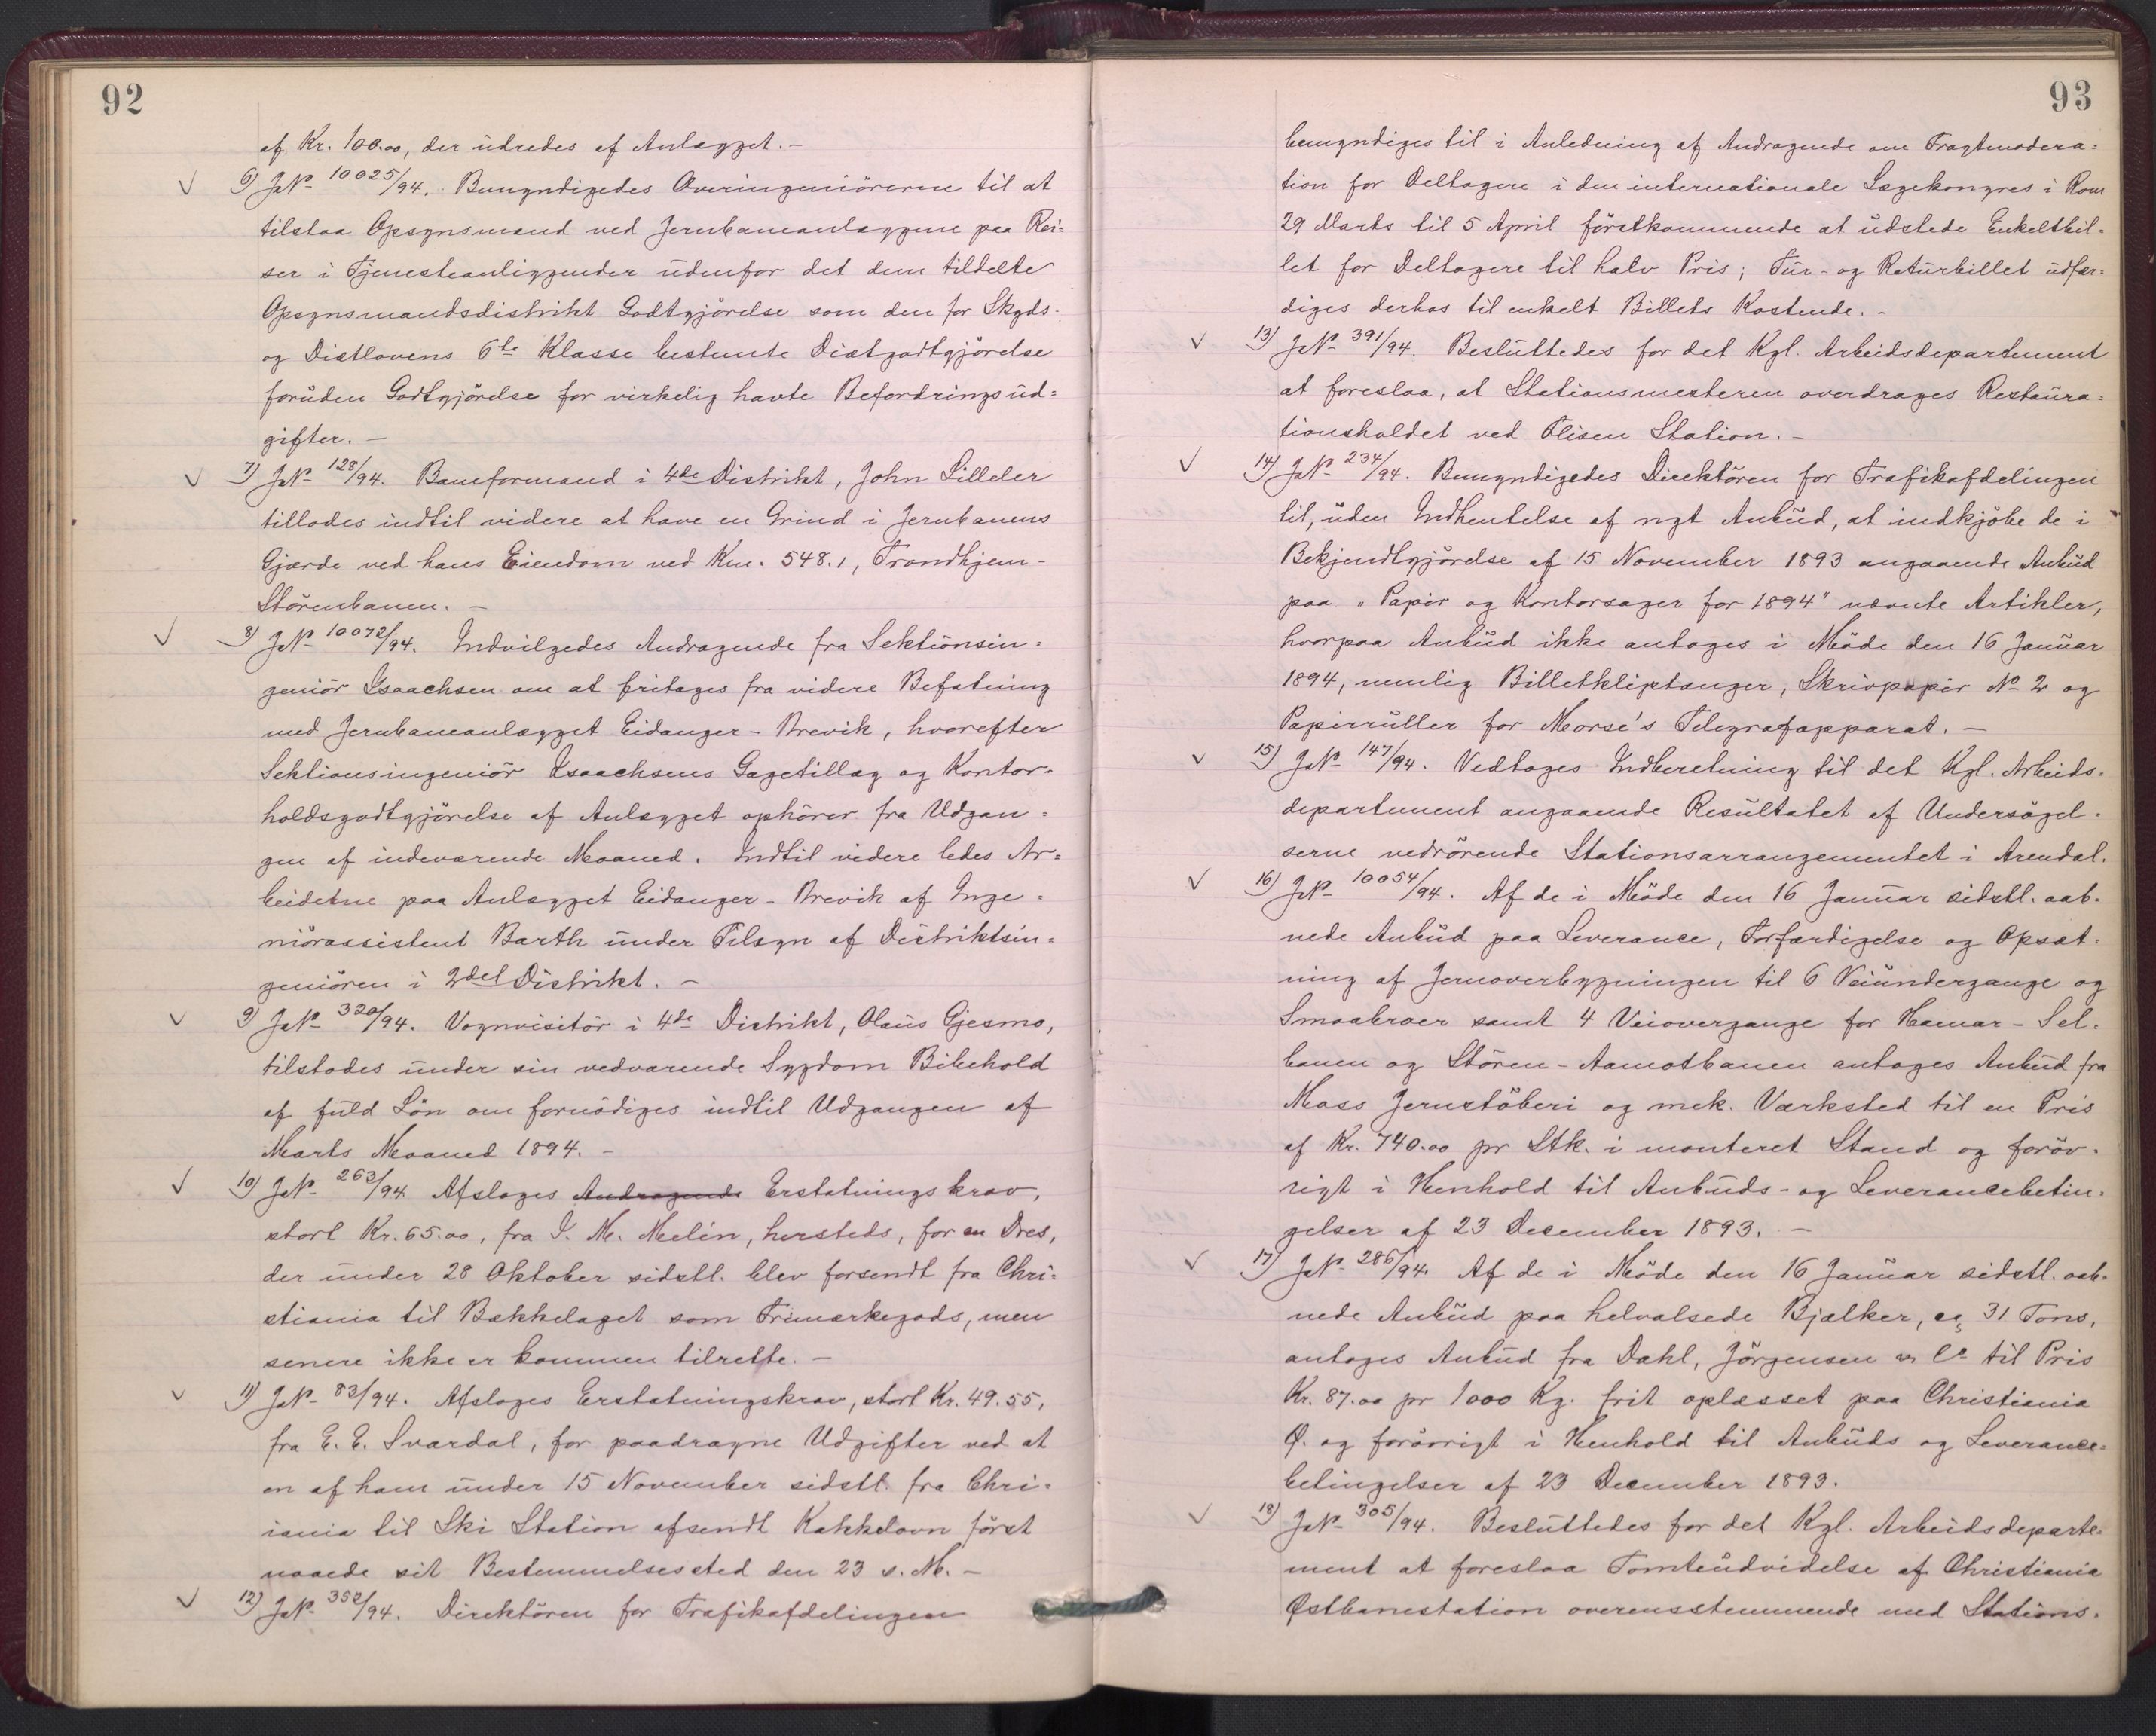 92
af Kr. 100.00, der udredes af Anlægget. -
6) JNo 10025/94. Bemyndigedes Overingeniörerne til at
tilstaa Opsynsmænd ved Jernbaneanlæggene paa Rei=
ser i Tjenesteanliggender udenfor det dem tildelte
Opsynsmandsdistrikt Godtgjörelse som den for Skyds-
og Diætlovens 6te Klasse bestemte Diætgodtgjörelse
foruden Godtgjörelse for virkelig havte Befordringsud=
gifter. -
7) JNo 128/94. Baneformand i 4de Distrikt, John Lilleler
tillodes indtil videre at have en Grind i Jernbanens
Gjærde ved hans Eiendom ved Km. 548.1, Trondhjem-
Störenbanen. -
8) JNo 10072/94. Indvilgedes Andragende fra Sektionsin=
geniör Isaachsen om at fritages fra videre Befatning
med Jernbaneanlægget Eidanger - Brevik, hvorefter
Sektionsingeniör Isaachsens Gagetillæg og Kontor=
holdsgodtgjörelse af Anlægget ophörer fra Udgan=
gen af indeværende Maaned. Indtil videre ledes Ar=
beiderne paa Anlægget Eidanger - Brevik af Inge=
niörassistent Barth under Tilsyn af Distriktsin=
geniören i 2det Distrikt. -
9) JNo 320/94. Vognvisitör i 4de Distrikt, Olaus Gjesmo,
tilstodes under sin vedvarende Sygdom Bibehold
af fuld Lön om fornödiges indtil Udgangen af
Marts Maaned 1894. -
10) JNo 263/94. Afsloges Andragende Erstatningskrav,
stort Kr. 65.00, fra I. M. Melin, hersteds, for en Dres,
der under 28 Oktober sidstl. blev forsendt fra Chri=
stiania til Bækkelaget som Frimærkegods, men
senere ikke er kommen tilrette. -
11) JNo 83/94. Afsloges Erstatningskrav, stort Kr. 49.55,
fra E. E. Svardal, for paadragne Udgifter ved at
en af ham under 15 November sidstl. fra Chri=
iania til Ski Station afsendt Kakkelovn först
naaede sit Bestemmelsessted den 23 s. M. -
12) JNo 352/94. Direktören for Trafikafdelingen
93
bemyndiges til i Anledning af Andragende om Fragtmodera=
tion for Deltagere i den internationale Lægekongres i Rom
29 Marts til 5 April förstkommende at udstede Enkeltbil=
let for Deltagere til halv Pris; Tur- og Returbillet udfær=
diges derhos til enkelt Billets Kostende. -
13) JNo 391/94. Besluttedes for det Kgl. Arbeidsdepartement
at foreslaa, at Stationsmesteren overdrages Restaura=
tionsholdet ved Flisen Station. -
14) JNo 234/94. Bemyndigedes Direktören for Trafikafdelingen
til, uden Indhentelse af nyt Anbud, at indkjöbe de i
Bekjendtgjörelse af 15 November 1893 angaaende Anbud
paa "Papir og Kontorsager for 1894" nævnte Artikler,
hvorpaa Anbud ikke antoges i Möde den 16 Januar
1894, nemlig Billetkliptænger, Skrivpapir No 2 og
Papirruller for Morse's Telegrafapparat. -
15) JNo 147/94. Vedtoges Indberetning til det Kgl. Arbeids=
departement angaaende Resultatet af Undersögel=
serne vedrörende Stationsarrangementet i Arendal.
16) JNo 10054/94. Af de i Möde den 16 Januar sidstl. aab=
nede Anbud paa Leverance, Forfærdigelse og Opsæt=
ning af Jernoverbygningen til 6 Veiundergange og
Smaabroer samt 4 Veiovergange for Hamar - Sel=
banen og Stören - Aamotbanen antoges Anbud fra
Moss Jernstöberi og mek. Værksted til en Pris
af Kr. 740.00 pr Stk. i monteret Stand og foröv=
rigt i Henhold til Anbuds- og Leverancebetin=
gelser af 23 December 1893. -
17) JNo 286/94. Af de i Möde den 16 Januar sidstl. aab=
nede Anbud paa helvalsede Bjælker, ca 31 Tons,
antoges Anbud fra Dahl, Jörgensen & Co til Pris
Kr. 87.00 pr 1000 Kg. frit oplæsset paa Christiania
Ø. og forövrigt i Henhold til Anbuds og Leverance=
betingelser af 23 December 1893.
18) JNo 305/94. Besluttedes for det Kgl. Arbeidsdeparte=
ment at foreslaa Tomteudvidelse af Christiania
Østbanestation overensstemmende med Stations=